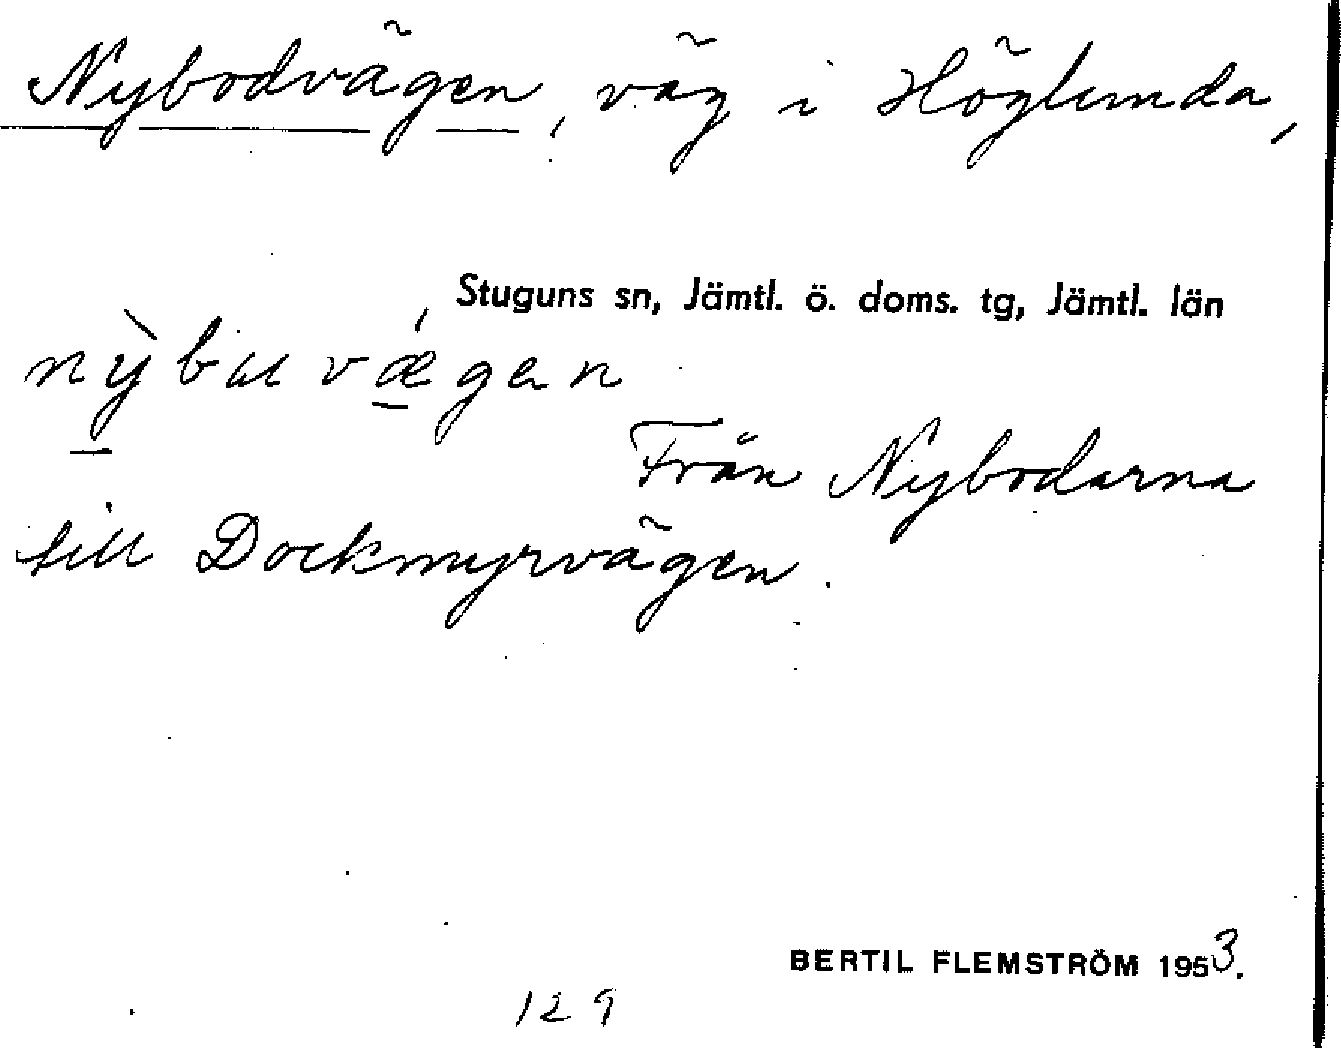 Nybodvägen, väg i Höglunda,
Stuguns sn, Jämtl. ö. doms. tg, Jämtl. län
nỳbuvǽgen
Från Nybodarna
till Dockmyrvägen.
BERTIL FLEMSTRÖM 1953.
129